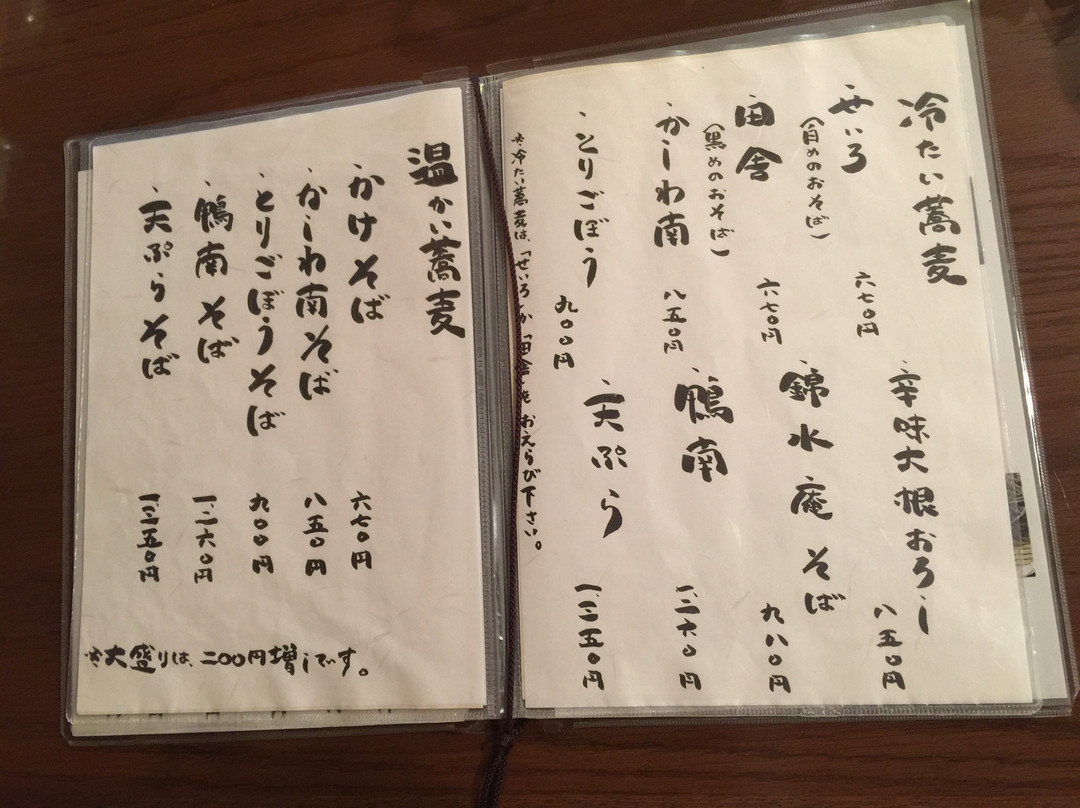 冷たい蕎麦
・せいろ
(白めのおそば)
六七〇円
・田舎
(黒めのおそば)
六七〇円
・かしわ南
八五〇円
・とりごぼう
九〇〇円
・辛味大根おろし
八五〇円
・錦水庵そば
九八〇円
・鴨南
一、二六〇円
・天ぷら
一、三五〇円
※冷たい蕎麦は、「せいろ」か「田舎」をおえらび下さい。
温かい蕎麦
・かけそば
六七〇円
・かしわ南そば
八五〇円
・とりごぼうそば
九〇〇円
・鴨南そば
一、二六〇円
・天ぷらそば
一、三五〇円
※大盛りは、二〇〇円増しです。